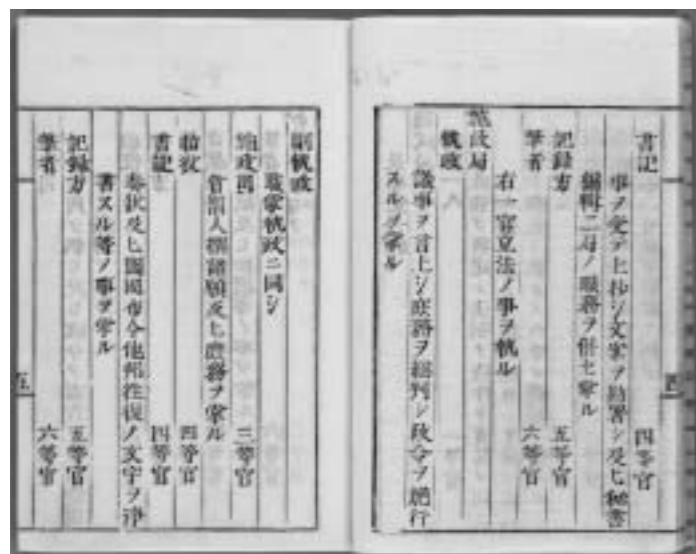 書記　四等官
事ヲ受テ上抄シ文案ヲ勘署シ及ヒ秘書
編輯二局ノ職務ヲ併セ掌ル
記録方　五等官
筆者　六等官
右一官立法ノ事ヲ執ル
施政局
執政
議事ヲ言上シ庶務ヲ総判シ政令ヲ施行
スルヲ掌ル
四
副執政
職掌執政ニ同シ
施政司　三等官
官部人撰諸願及ヒ庶務ヲ掌ル
四等官
書記　四等官
奏状及ヒ国内布令他邦往復ノ文字ヲ浄
書スル等ノ事ヲ掌ル
記録方　五等官
筆者　六等官
五